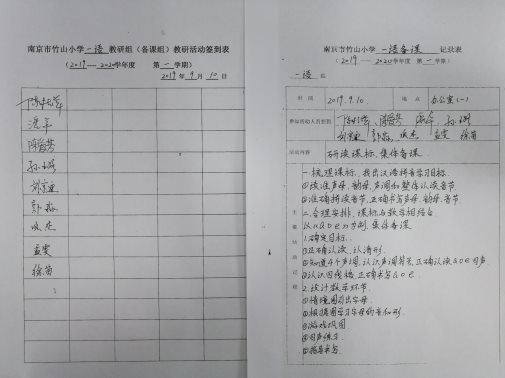 南京市竹山小学一语教研组（备课组）教研活动签到表
（2019----2020学年度 第一学期）
2019年9月10日
陈爱芳
孟雯
徐茵
南京市竹山小学一语备课记录表
（2019----2020学年度 第一学期）
一语组
时间 2019.9.10 地点 办公室(一)
参加活动人员签到
陈爱芳
孟雯 徐茵
活动内容 研读课标，集体备课
一、梳理课标，找出汉语拼音学习目标
①读准声母、韵母、声调和整体认读音节
②准确拼读音节，正确书写声母、韵母、音节
二、合理安排，课标与教学相结合
以《ɑ o e》为例，集体备课
1.确定目标：
①正确认读，认清形
②知道4个声调，认识声调符号，正确认读ɑ o e四声
③认识四线格，正确书写ɑ o e.
2.设计教学环节
①情境图引出字母
②根据图学习字母的音和形
③游戏巩固
④四声练习
⑤指导书写